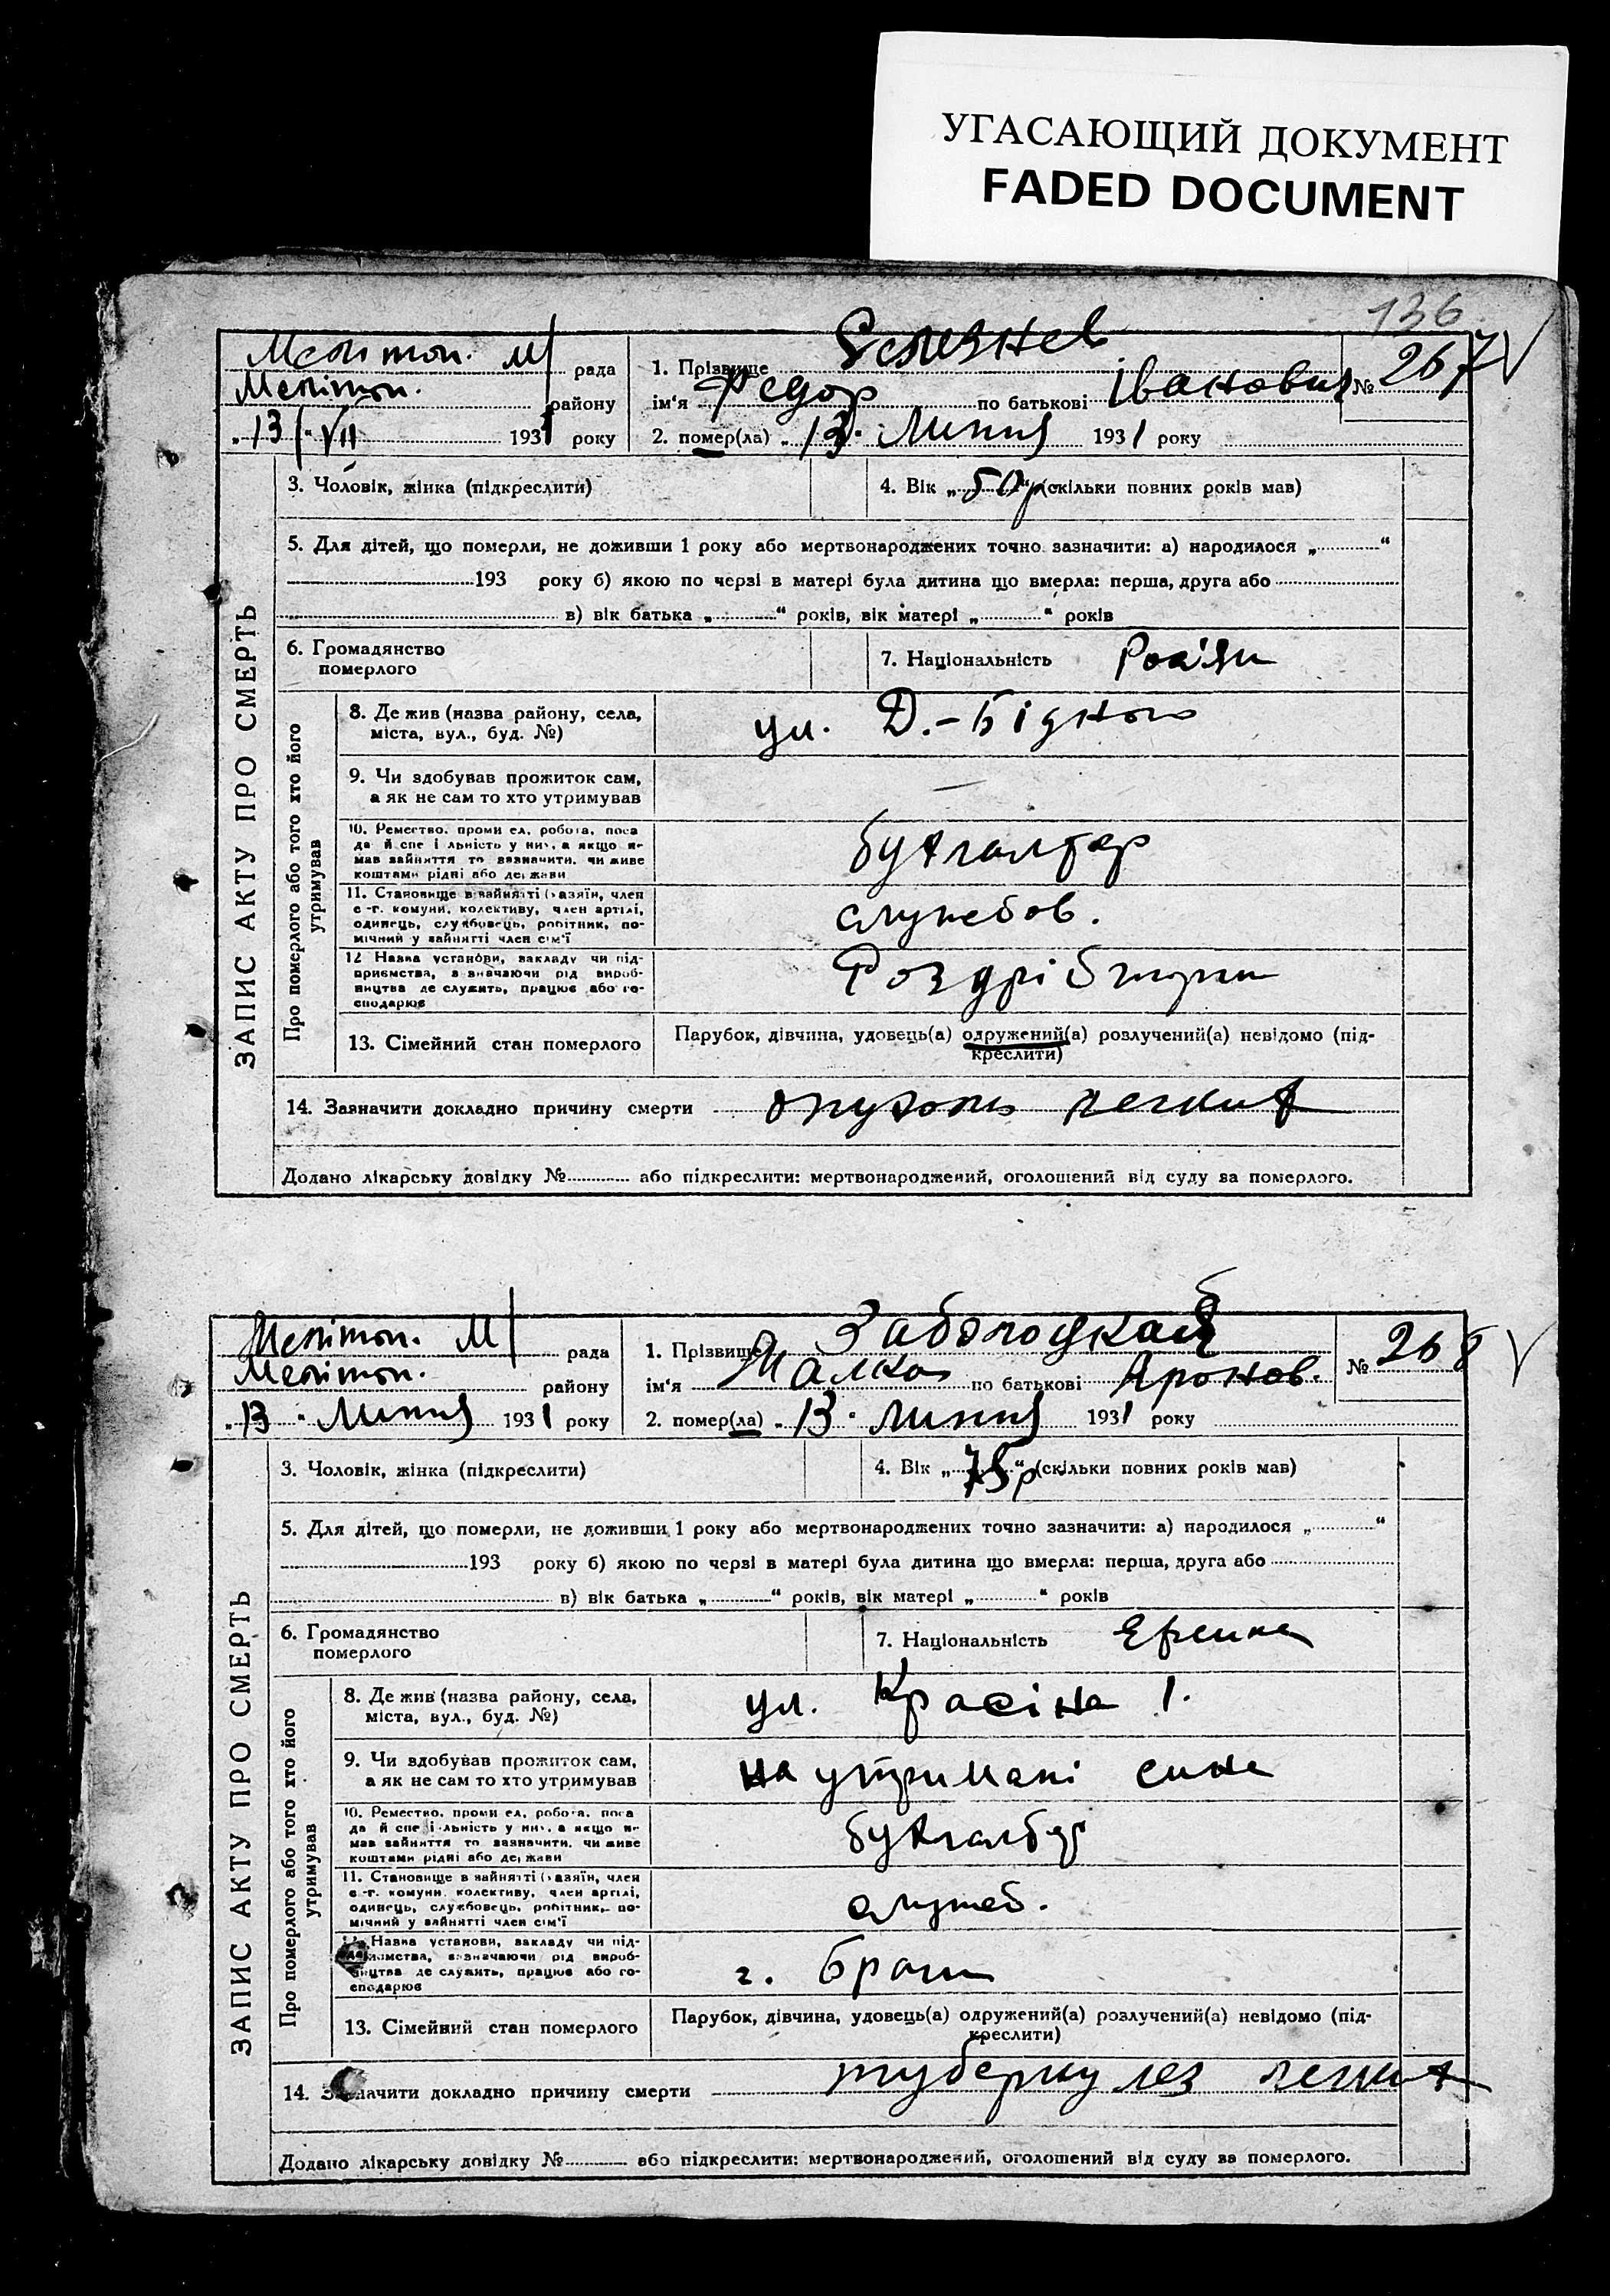 УГАСАЮЩИЙ ДОКУМЕНТ
FADED DOCUMENT
136
Мелітоп. М рада
Мелітоп. району
„13/" VII 1931 року
1. Прізвище Селезнев
ім‘я Федор по батькові Іванович
№ 267 V
2. помер(ла) „13" Липня 1931 року
3. Чоловік, жінка (підкреслити)
4. Вік „50р“ (скільки повних років мав)
5. Для дітей, що померли, не доживши 1 року або мертвонароджених точно зазначити: а) народилося „ “
193 року б) якою по черзі в матері була дитина що вмерла: перша, друга або
в) вік батька „ “ років, вік матері „ “ років
6. Громадянство
померлого
7. Національність Росіян
ЗАПИС АКТУ ПРО СМЕРТЬ
Про померлого або того хто його
утримував
8. Де жив (назва району, села,
міста, вул., буд. №)
ул. Д.-Бідного
9. Чи здобував прожиток сам,
а як не сам то хто утримував
—
10. Ремество, проми ел, робота, поса
да й спе і льність у них, а якщо н-
мав зайняття то зазначити, чи живе
коштами рідні або держави
бухгалтер
11. Становище в зайнятті (хазяїн, член
с-г. комуни, колективу, член артілі,
одинець, службовець, робітник, по-
мічний у зайнятті член сім‘ї
служебов.
12 Назва установи, закладу чи під-
приємства, зазначаючи рід вироб-
ництва де служить, працює або го-
сподарює
13. Сімейний стан померлого
Парубок, дівчина, удовець(а) одружений(а) розлучений(а) невідомо (під-
креслити)
14. Зазначити докладно причину смерти опухоль легких
Додано лікарську довідку № або підкреслити: мертвонароджений, оголошений від суду за померлого.
Мелітоп. М рада
Мелітоп. району
„13" Липня 1931 року
1. Прізвище Заболоцкая
ім‘я Малка по батькові Аронов.
№ 268 V
2. помер(ла) „13" липня 1931 року
3. Чоловік, жінка (підкреслити)
4. Вік „75р“ (скільки повних років мав)
5. Для дітей, що померли, не доживши 1 року або мертвонароджених точно зазначити: а) народилося „ “
193 року б) якою по черзі в матері була дитина що вмерла: перша, друга або
в) вік батька „ “ років, вік матері „ “ років
6. Громадянство
померлого
7. Національність Еврейка
ЗАПИС АКТУ ПРО СМЕРТЬ
Про померлого або того хто його
утримував
8. Де жив (назва району, села,
міста, вул., буд. №)
ул. Красіна 1.
9. Чи здобував прожиток сам,
а як не сам то хто утримував
на утримані сина
10. Ремество, проми ел, робота, поса
да й спе і льність у них, а якщо н-
мав зайняття то зазначити, чи живе
коштами рідні або держави
бухгалтер
11. Становище в зайнятті (хазяїн, член
с-г. комуни, колективу, член артілі,
одинець, службовець, робітник, по-
мічний у зайнятті член сім‘ї
служеб.
Назва установи, закладу чи під-
приємства, зазначаючи рід вироб-
ництва де служить, працює або го-
сподарює
13. Сімейний стан померлого
Парубок, дівчина, удовець(а) одружений(а) розлучений(а) невідомо (під-
креслити)
14. Зазначити докладно причину смерти туберкулез легких
Додано лікарську довідку № або підкреслити: мертвонароджений, оголошений від суду за померлого.